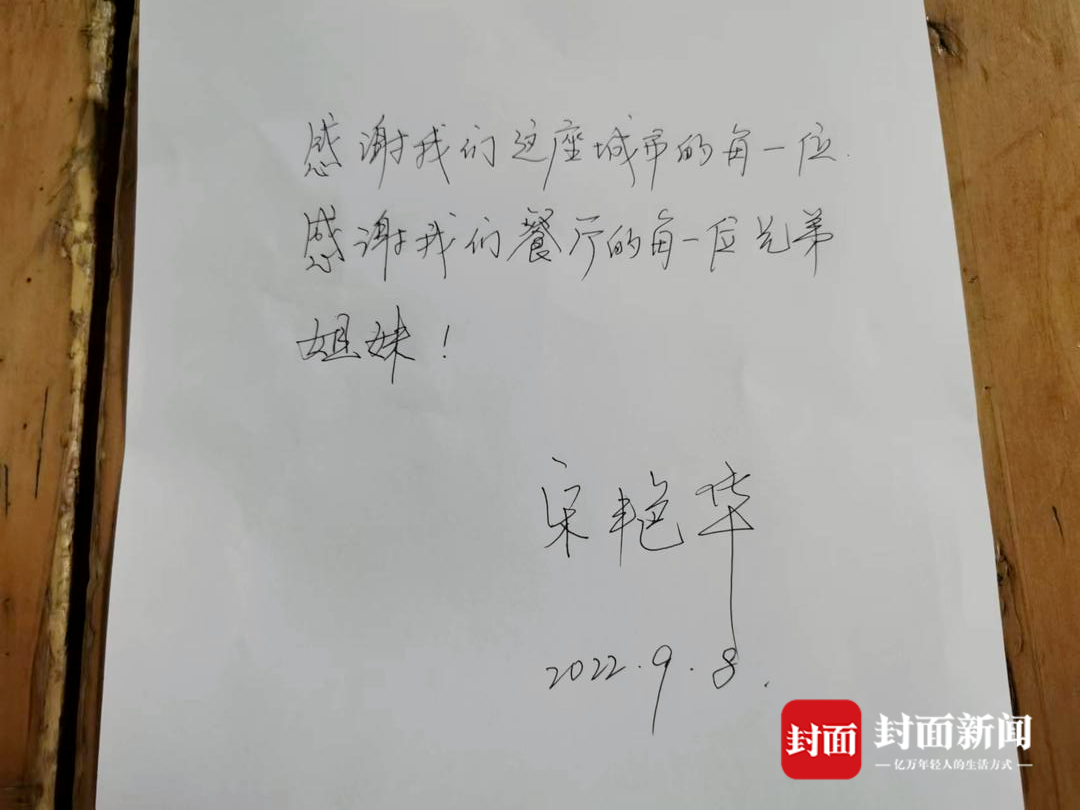 感谢我们这座城市的每一位.
感谢我们餐厅的每一位兄弟
姐妹!
宋艳华
2022.9.8.
封面 封面新闻
亿万年轻人的生活方式